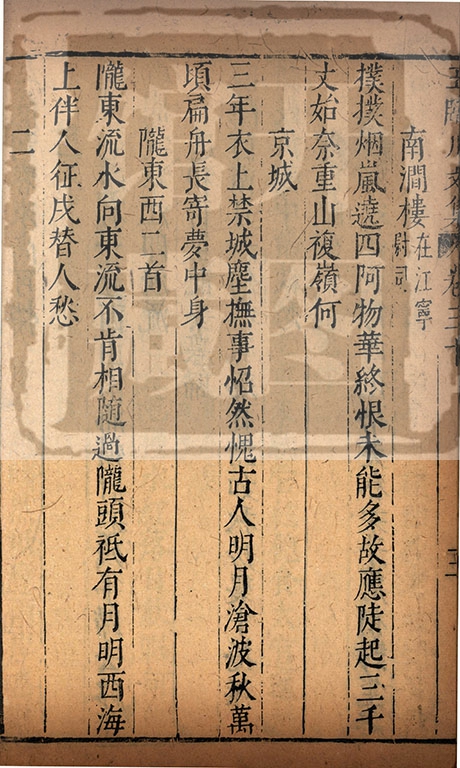 南澗樓在江寧尉司
撲撲烟嵐遶四阿物華終恨未能多故應陡起三千
丈始奈重山複嶺何
京城
三年衣上禁城塵撫事怊然愧古人明月滄波秋萬
頃扁舟長寄夢中身
隴東西二首
隴東流水向東流不肯相隨過隴頭祗有月明西海
上伴人征戍替人愁
二